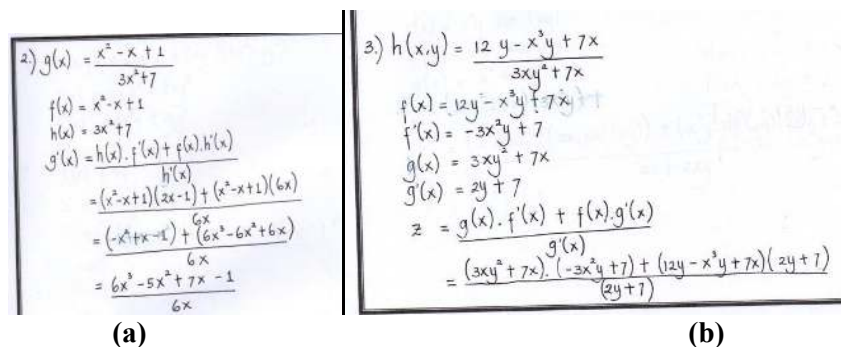 2.) g(x) = x² - x + 1 / 3x² + 7
f(x) = x² - x + 1
h(x) = 3x² + 7
g'(x) = h(x) . f'(x) + f(x) . h'(x) / h'(x)
= (x² - x + 1)(2x - 1) + (x² - x + 1)(6x) / 6x
= (-x² + x - 1) + (6x³ - 6x² + 6x) / 6x
= 6x³ - 5x² + 7x - 1 / 6x
(a)
3.) h(x,y) = 12y - x³y + 7x / 3xy² + 7x
f(x) = 12y - x³y + 7x
f'(x) = -3x²y + 7
g(x) = 3xy² + 7x
g'(x) = 2y + 7
z = g(x) . f'(x) + f(x) . g'(x) / g'(x)
= (3xy² + 7x) . (-3x²y + 7) + (12y - x³y + 7x)(2y + 7) / (2y + 7)
(b)